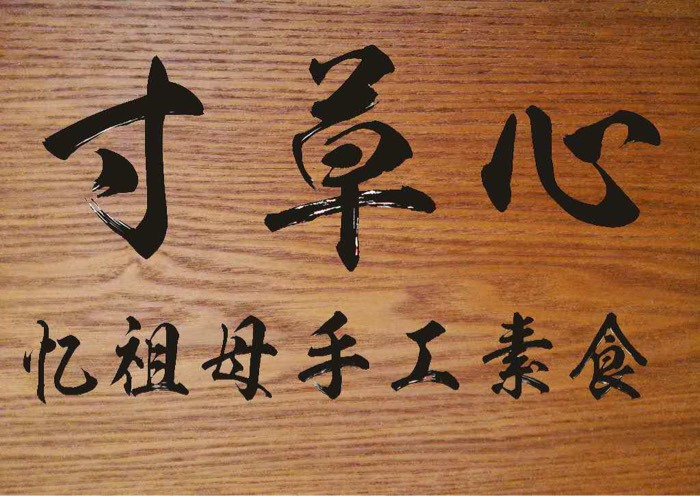 寸草心
忆祖母手工素食